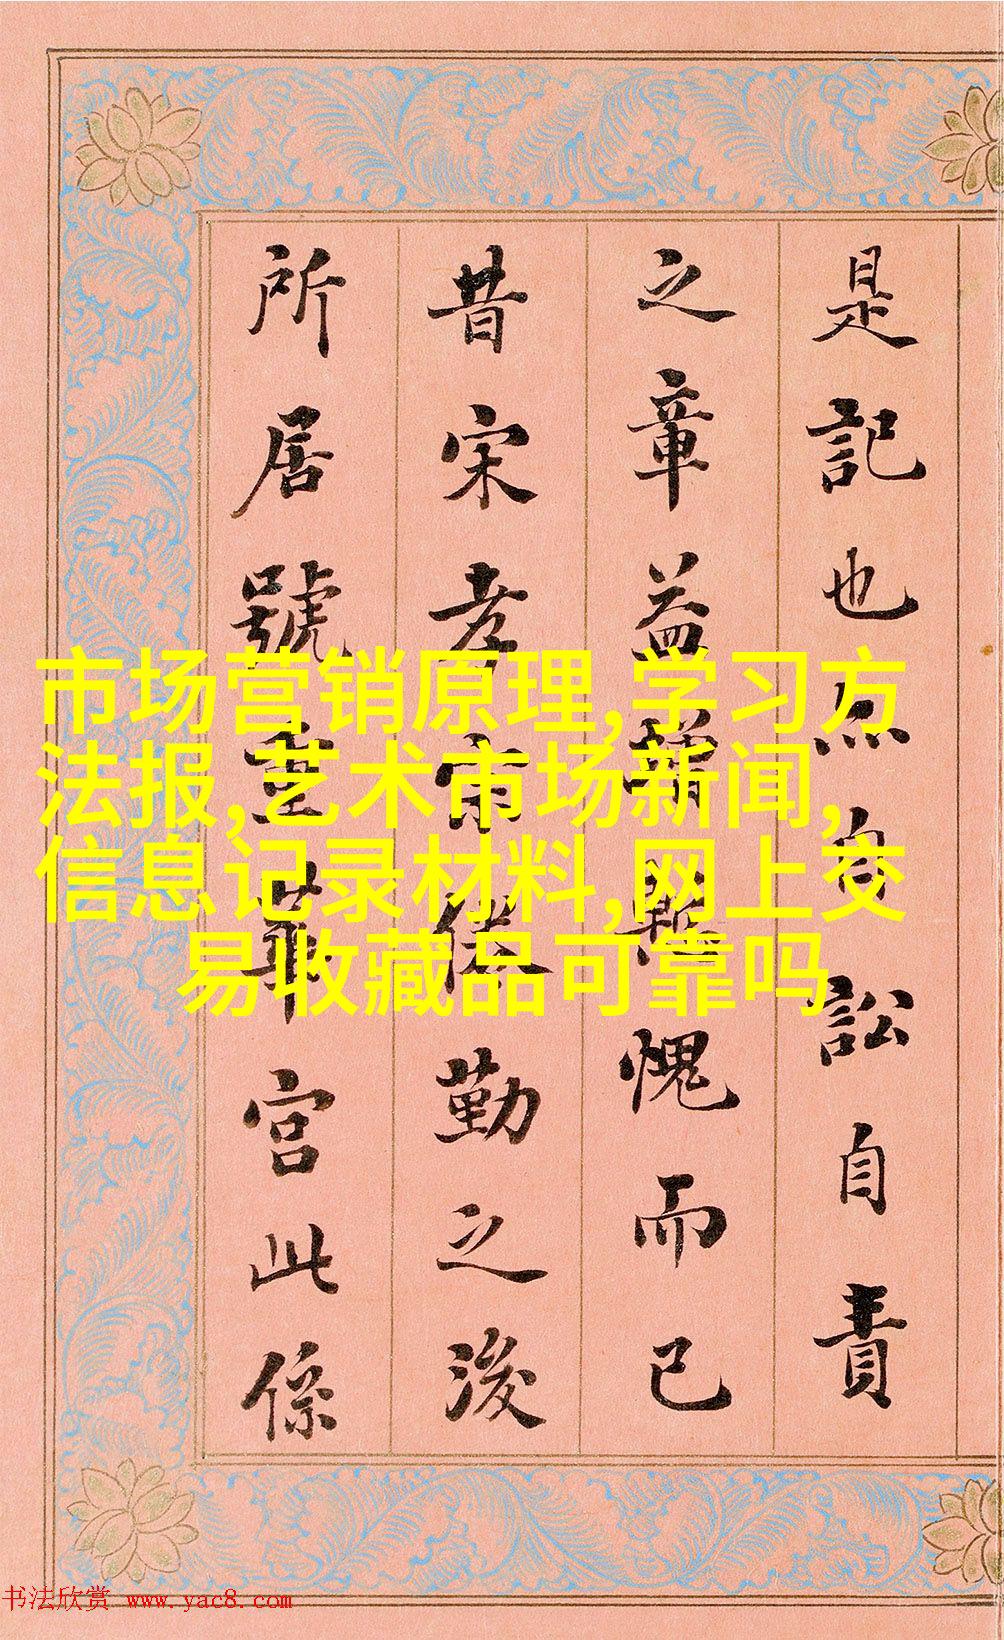 是記也亦自訟自責
之章益增慙愧而已
昔宋孝宗倦勤之後
所居號重華宮此係
市场营销原理,学习方
法报,艺术市场新闻,
信息记录材料,网上交
易收藏品可靠吗
书法欣赏 www.yac8.com